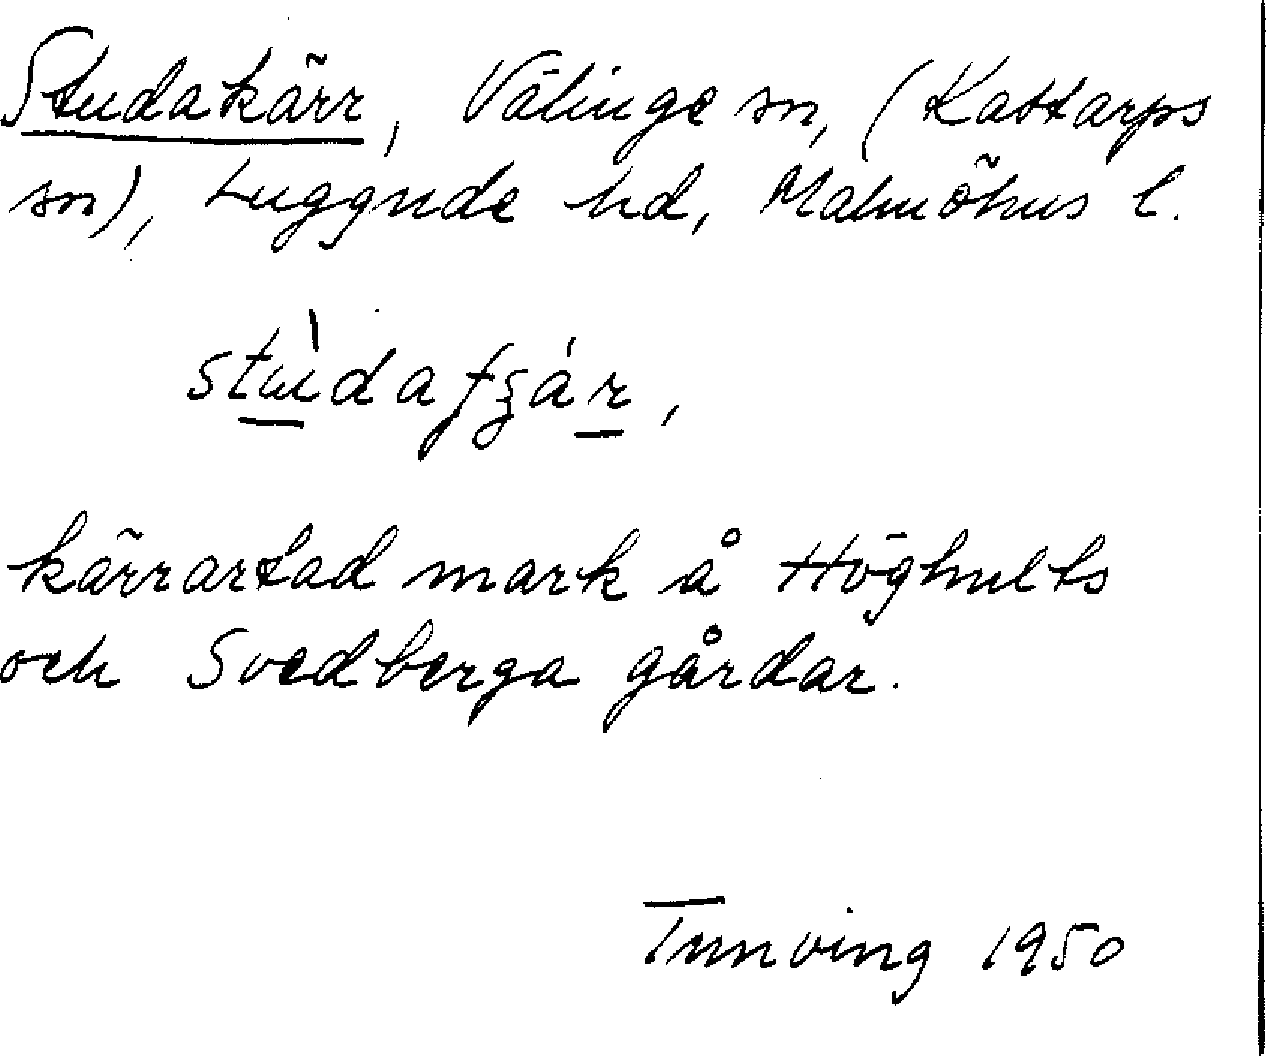 Studakärr, Välinge sn, (Kattarps
sn), Luggude hd, Malmöhus l.
kärrartad mark å Höghults
och Svedberga gårdar.
Tunving 1950